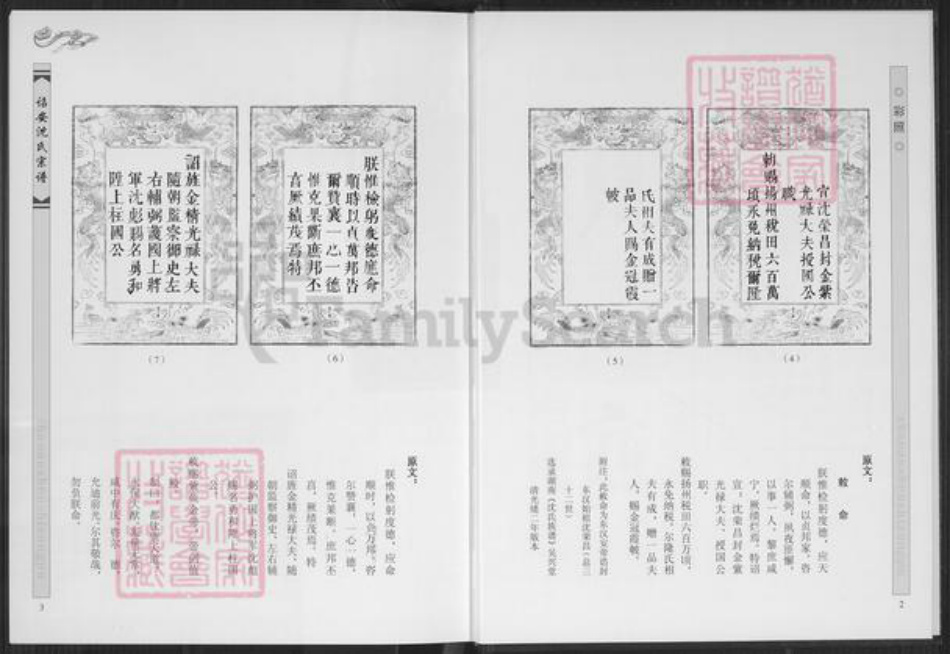 彩照
官沈荣昌封金紫
光禄大夫授國公
職
勅賜揚州稅田六百萬
頃永免納稅爾隆
(4)
氏相夫有成贈一
品夫人賜金冠霞
帔
(5)
原文：
敕 命
朕惟检躬度德，应天
顺命，以贞邦家，咨
尔辅弼，夙夜匪懈，
以事一人，黎庶咸
宁，厥绩烂焉，特诏
宣：沈荣昌封金紫
光禄大夫，授国公
职。
敕赐扬州税田六百万顷，
永免纳税，尔隆氏相
夫有成，赠一品夫
人，赐金冠霞帔。
附注：此敕命为东汉安帝诰封
东汉始祖沈荣昌（总三
十二世）
选录湖南《沈氏族谱》吴兴堂
清光绪二年版本
2
詔安沈氏宗谱
朕惟檢躬度德應命
順時以貞萬邦咨
爾贊襄一心一德
惟克果斷庶邦丕
喜厥績茂焉特
(6)
詔旌金精光祿大夫
隨朝監察御史左
右輔弼護國上將
軍沈彪賜名勇和
陞上柱國公
(7)
原文：
朕惟检躬度德，应命
顺时，以贞万邦，咨
尔赞襄，一心一德，
惟克果断，庶邦丕
喜，厥绩茂焉，特
诏旌金精光禄大夫、随
朝监察御史、左右辅
弼护国上将军沈彪
赐名勇和陞上柱国
公。
允迪前光，尔其敬哉，
勿负朕命。
3
FamilySearch